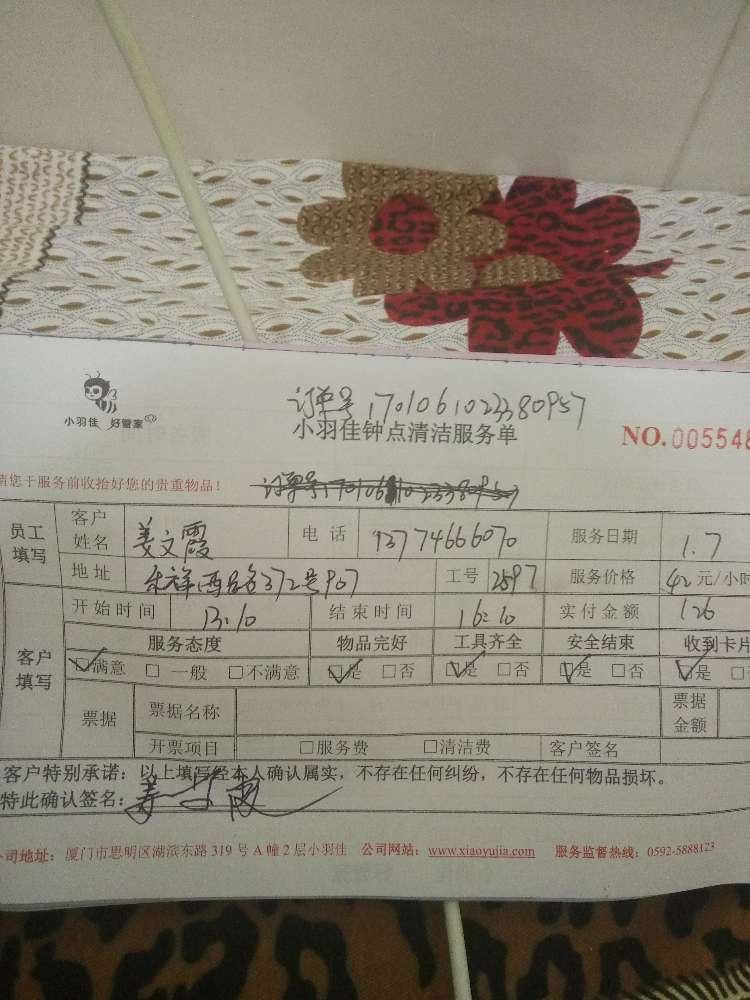 订单号1701061023380957
小羽佳 好管家
小羽佳钟点清洁服务单
NO.005548
请您于服务前收拾好您的贵重物品！
员工填写 客户姓名 姜文霞 电话 13774666070 服务日期 1.7
地址 西路372号907 工号 2597 服务价格 42元/小时
客户填写 开始时间 13:10 结束时间 16:10 实付金额 126
服务态度 物品完好 工具齐全 安全结束 收到卡片
☑满意 □一般 □不满意 ☑是 □否 ☑是 □否 ☑是 □否 ☑是 □否
票据 票据名称 票据金额
开票项目 □服务费 □清洁费 客户签名
客户特别承诺：以上填写经本人确认属实，不存在任何纠纷，不存在任何物品损坏。
特此确认签名：姜文霞
公司地址：厦门市思明区湖滨东路319号A幢2层小羽佳 公司网站：www.xiaoyujia.com 服务监督热线：0592-5888123